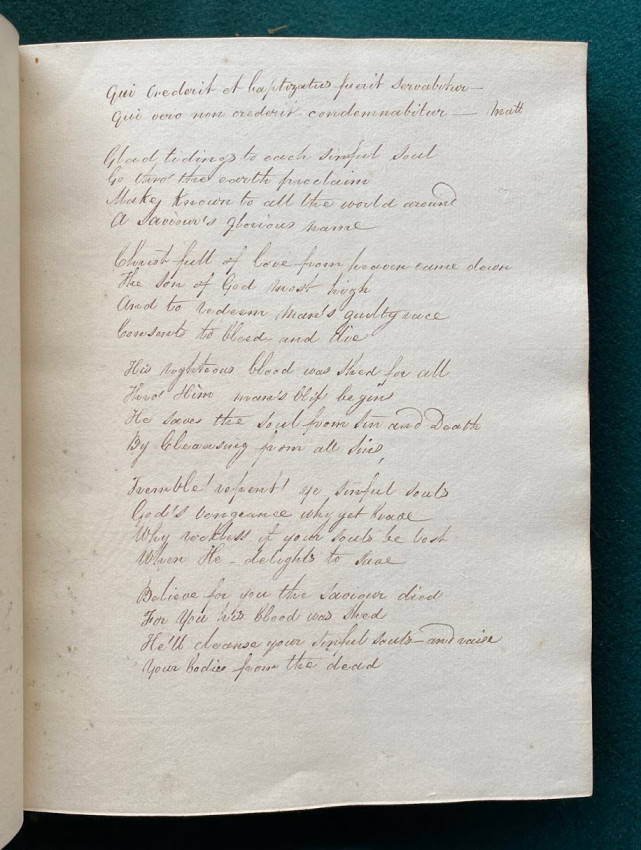 Qui Crederit et baptizatus fuerit servabitur —
Qui vero non crederit condemnabitur — Matt
Glad tidings to each sinful soul
Go thro' the earth proclaim
Make known to all the world around
A Saviour's glorious name
Christ full of love from heaven came down
The son of God most high
And to redeem man's guilty race
Consents to bleed and die
His righteous blood was shed for all
Thro' Him man's begins
He saves the soul from Sin and Death
By Cleansing from all Sins,
Tremble! repent! ye sinful souls
God's vengeance why yet brave
Why reckless if your souls be lost
When He – delights to save
Believe for you the Saviour died
For You his blood was shed
He'll cleanse your sinful souls – and raise
Your bodies from the dead